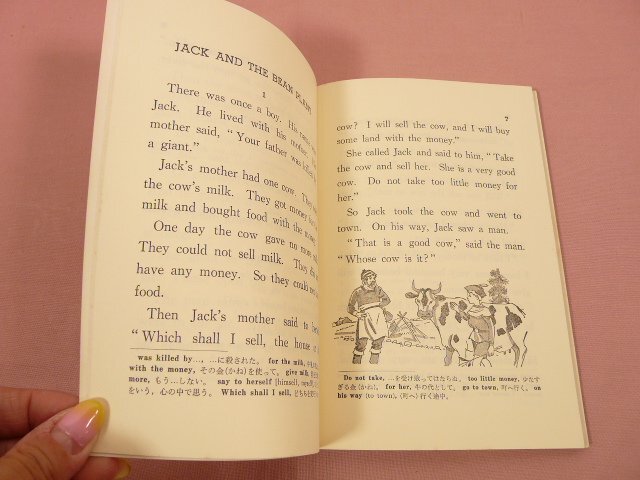 JACK AND THE BEAN PLANT
1
There was once a boy. His name
Jack. He lived with his mother.
mother said, "Your father was killed
a giant."
Jack's mother had one cow. They
the cow's milk. They got money
milk and bought food with the money
One day the cow gave no more
They could not sell milk. They
have any money. So they could
food.
Then Jack's mother said to
"Which shall I sell, the house
was killed by…, …に殺された. for the milk,
with the money, その金(かね)を使って. give milk,
more, もう…しない. say to herself [himself,
をいう, 心の中で思う. Which shall I sell,
7
cow? I will sell the cow, and I will buy
some land with the money."
She called Jack and said to him, "Take
the cow and sell her. She is a very good
cow. Do not take too little money for
her."
So Jack took the cow and went to
town. On his way, Jack saw a man.
"That is a good cow," said the man.
"Whose cow is it?"
Do not take, …を受け取ってはならぬ. too little money, 少なす
ぎる金(かね). for her, 牛の代として. go to town, 町へ行く. on
his way (to town), (町へ)行く途中.